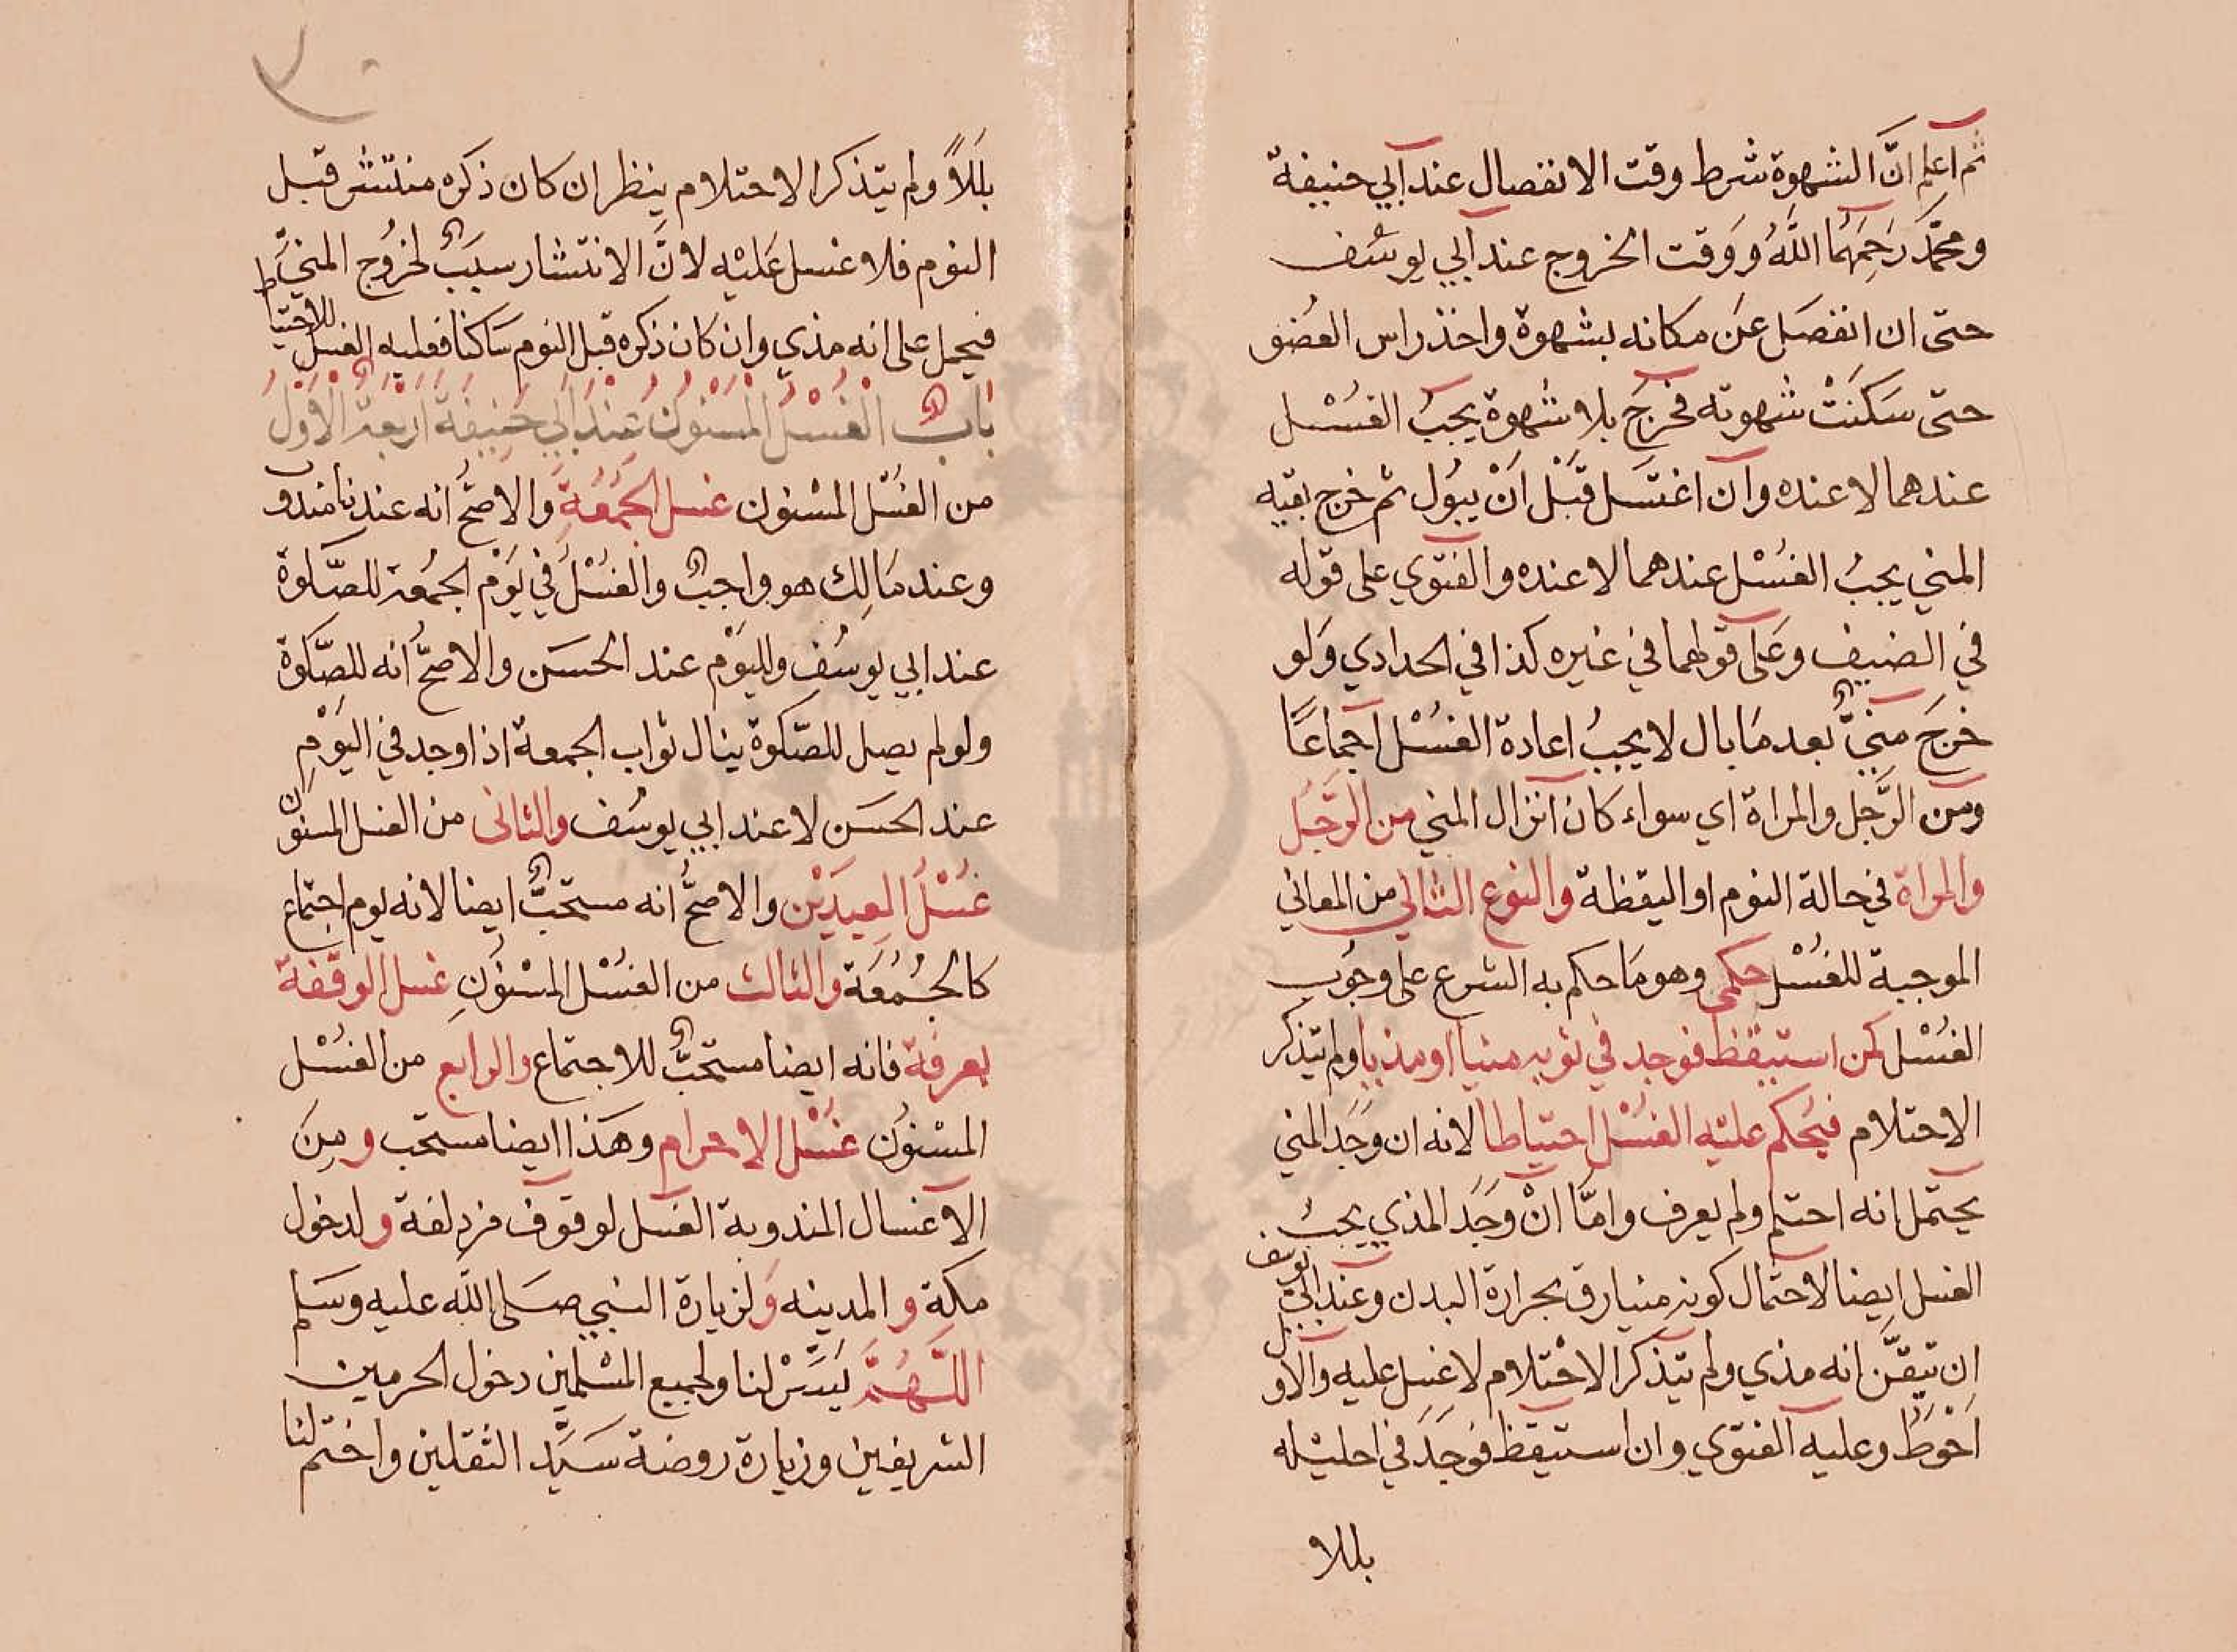 ثم اعلم انَّ الشهوة شرط وقت الانفصال عند ابي حنيفة
ومحمَّد رَحِمَهُمَا اللَّهُ وَوَقت الخروج عند ابي يوسُف
حتى ان انفصَل عَن مكانه بشهوة واخذ راس العضو
حتى سَكنَتْ شهوته فخرجَ بلا شهوة يجبُ الغُسْل
عندهما لا عنده وان اغتسَل قَبْل اَنْ يبُول ثم خرج بقيه
المني يجبُ الغُسْل عندهما لا عنده والفتوي على قوله
في الضيف وعَلى قولهما في غيره كذا في الحدادي وَلو
خرجَ منيٌّ بعد مَا بال لا يجبُ اعادة الغُسْل اجماعًا
ومن الرَّجل والمراة اي سواء كان انزال المني من الرَّجُل
والمراة في حالة النوم او اليقظة والنوع الثاني من المعاني
الموجبة للغُسْل حكمي وهو مَا حكم به الشرع على وجوب
الغُسْل كمن استيقظ فوجد في ثوبه منيا او مذيا ولم يتذكر
الاحتلام فيُحكم عليْه الغُسْل احتياطا لانه ان وَجَد المني
يحتمل انه احتلم ولم يعرف وامَّا انْ وَجَد المذي يجبُ
الغسل ايضا لاحتمال كونه منيا رق بحرارة البدن وعند ابي يوسف
ان تيقَّن انه مذي ولم يتذكر الاحْتلام لا غسل عليه والاول
اَحْوَطُ وعليه الفتوي وان استيقظ فوَجَدَ في احليْله
بللا
بلَلاً ولم يتذكر الاحتلام ينظر ان كان ذكره منتشر قبل
النوم فلا غسل عَليْه لانَّ الانتشار سببٌ لخرُوج المنيِّ
فيحمل على انه مذي وان كان ذكره قبل النوم سَاكنا فعليه الغسلُ للاحتياط
بَابُ الغُسْلُ المَسْنُونُ عِنْدَ اَبِي حَنِيفَةَ اَرْبَعَة الْاَوَّلُ
من الغُسْل المسْنون غسل الجُمُعَةِ وَالاصَحُّ انه عندنا مندوب
وعند مَالِك هو واجبٌ والغُسْلُ في يَوْم الجمُعة للصَّلوة
عند ابي يوسُف ولليَوْم عند الحسَن والاصَحُّ انه للصَّلوة
ولو لم يصل للصّلوة ينال ثواب الجمعة اذا وجد في اليَوْمِ
عند الحسَن لا عند ابي يوسُف والثانى من الغسل المسنون
غُسْلُ العِيدَيْن والاصَحُّ انه مستحبٌّ ايضا لانه يوم اجتماع
كالجُمُعَة والثالث من الغُسْل المسْنوُنِ غسل الوقفة
بعرفة فانه ايضا مستحبٌّ للاجتماع والرابع من الغسْل
المسْنوُن غسْل الاحرام وهَذا ايضا مستحب ومِنَ
الاغسال المندوبة الغسل لوقوف مزدلفة ولدخول
مكة والمدينه وَلزيارة النبي صَلى الله عليه وسَلم
اللَّهُمَّ يَسِّرْ لنا ولجميع المسْلمين دخول الحرمين
الشريفين وزيارة روضة سَيِّد الثقلين واختم لنا